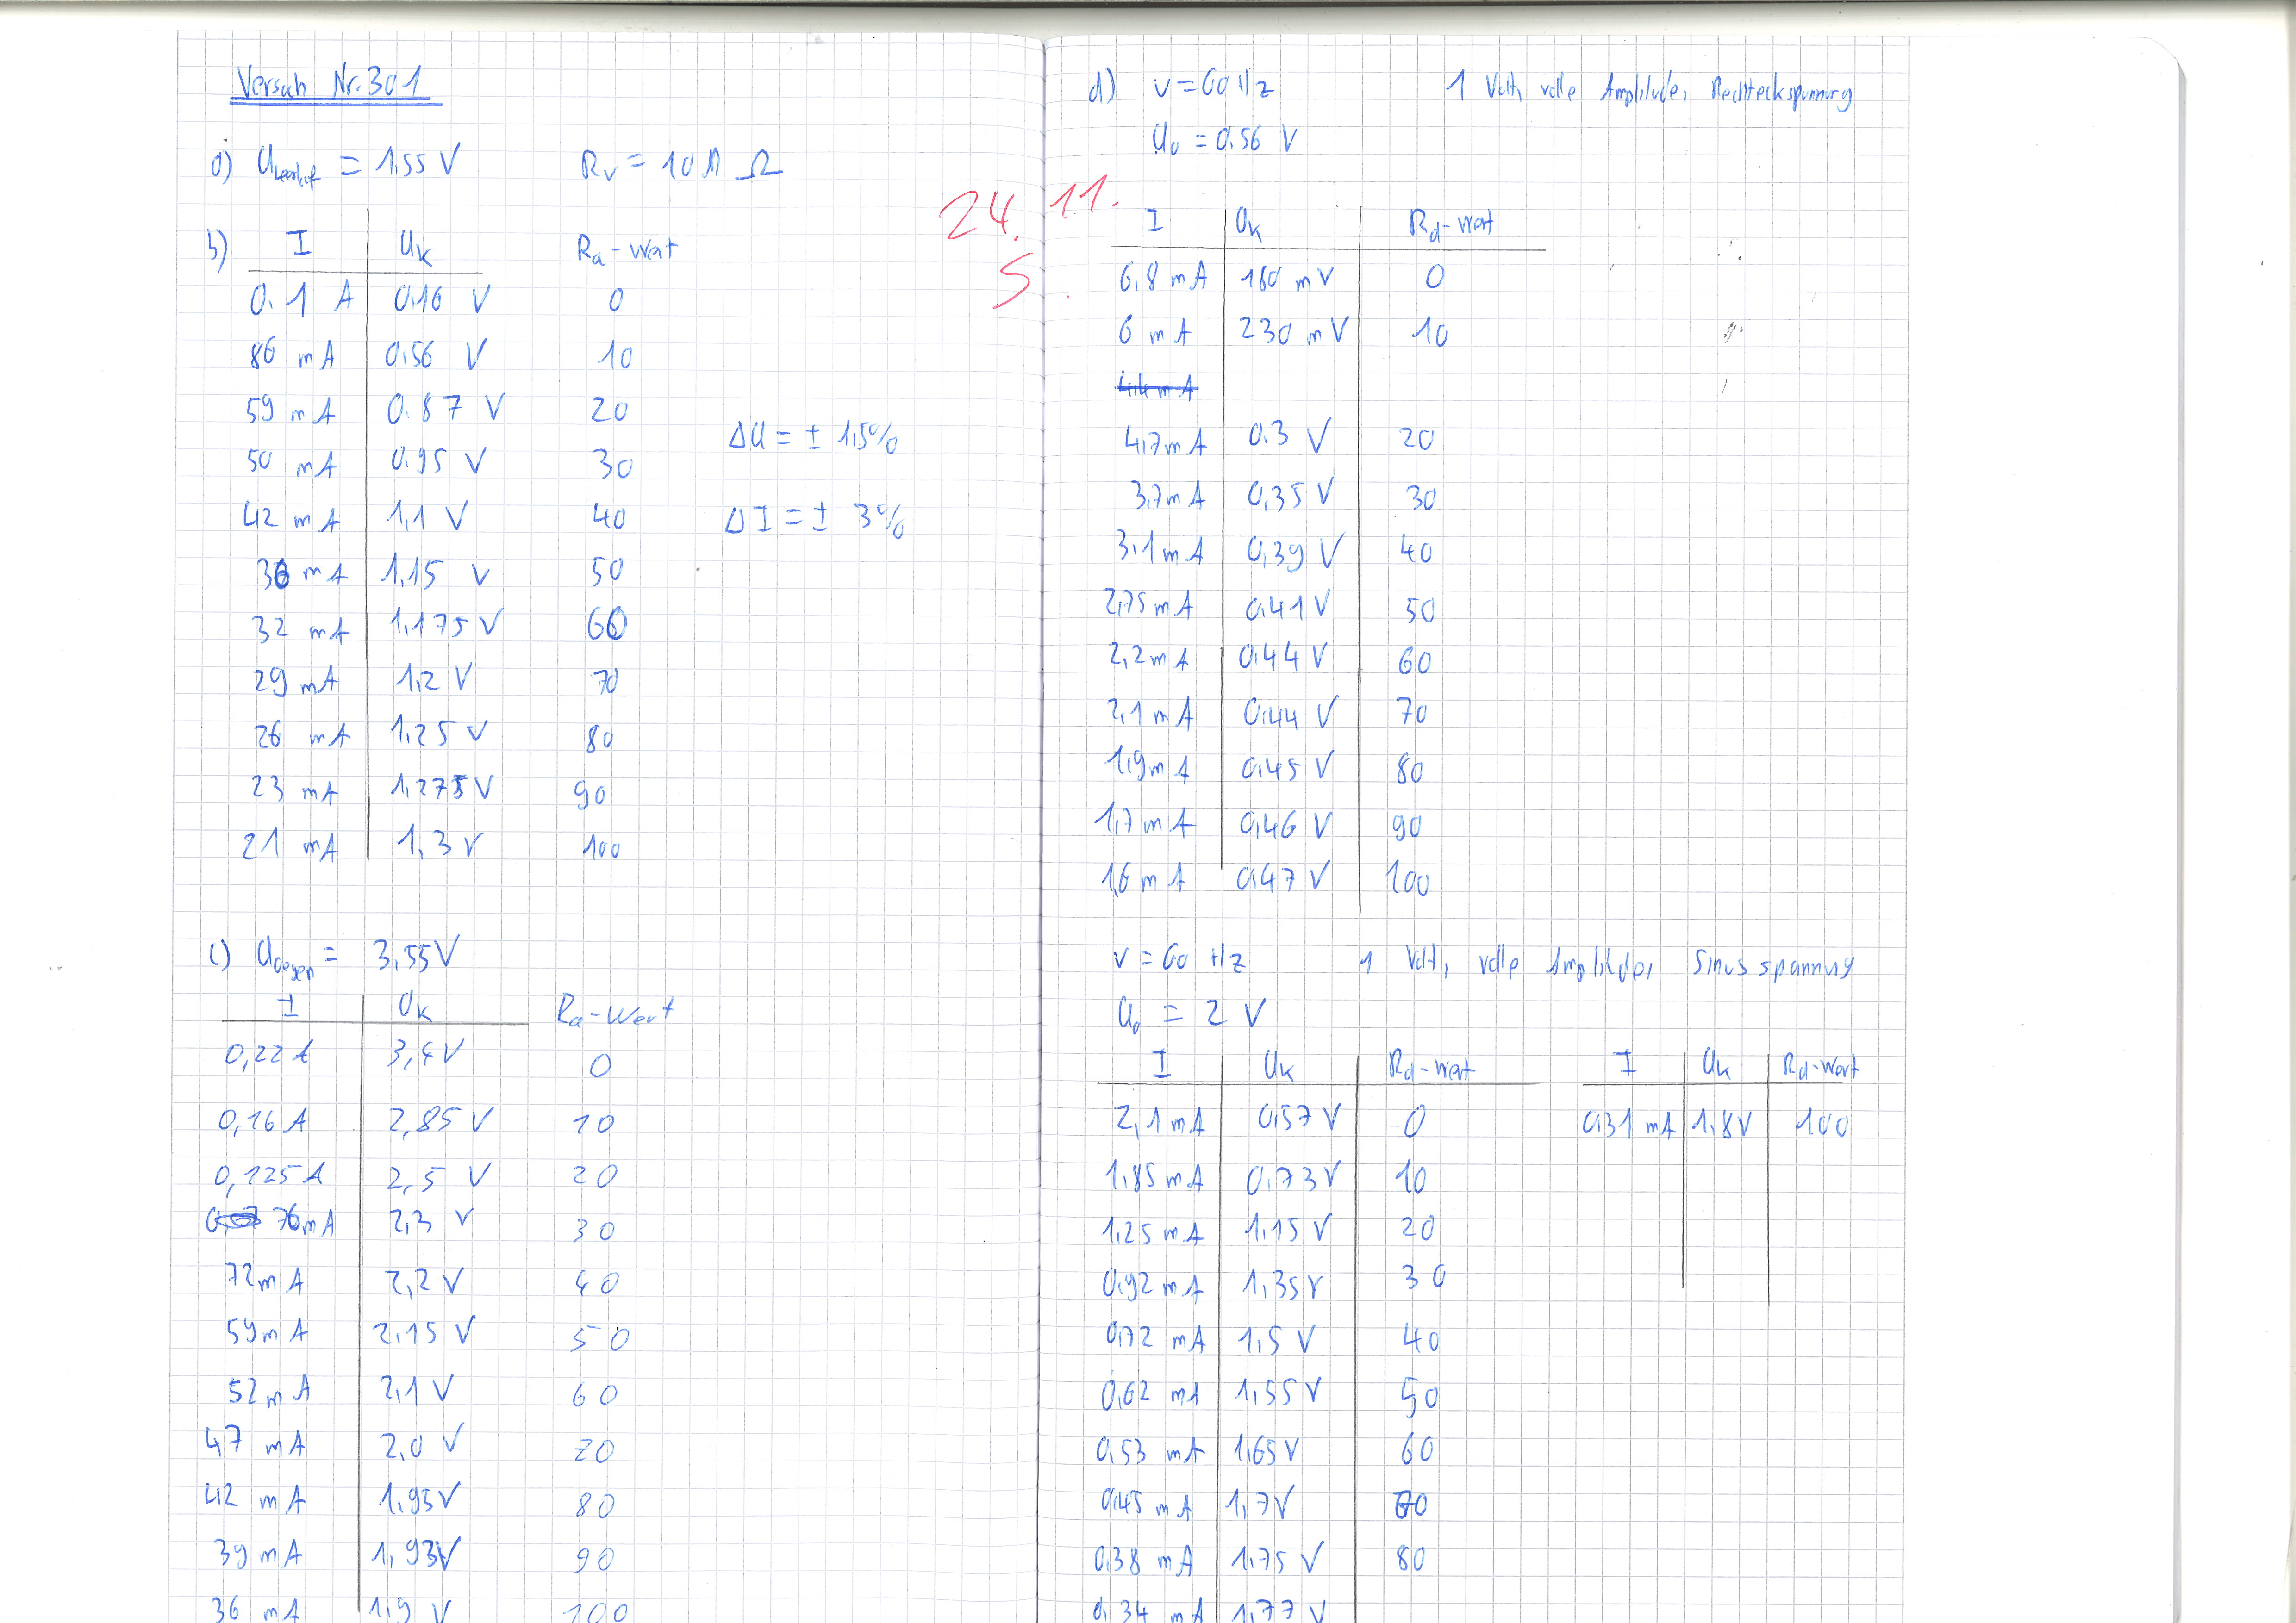 Versuch Nr. 301
a) U_Leerlauf = 1,55 V R_V = 10 Ω
b) I U_K R_a-Wert
0,1 A 0,16 V 0
86 mA 0,56 V 10
59 mA 0,87 V 20
50 mA 0,95 V 30
42 mA 1,1 V 40
36 mA 1,15 V 50
32 mA 1,175 V 60
29 mA 1,2 V 70
26 mA 1,25 V 80
23 mA 1,275 V 90
21 mA 1,3 V 100
ΔU = ± 1,5%
ΔI = ± 3%
c) U_Gegen = 3,55 V
I U_K R_a-Wert
0,22 A 3,4 V 0
0,16 A 2,85 V 10
0,125 A 2,5 V 20
76 mA 2,3 V 30
72 mA 2,2 V 40
59 mA 2,15 V 50
52 mA 2,1 V 60
47 mA 2,0 V 70
42 mA 1,95 V 80
39 mA 1,93 V 90
36 mA 1,9 V 100
24.11.
S.
d) ν = 60 Hz 1 Volt, volle Amplitude, Rechteckspannung
U_0 = 0,56 V
I U_K R_a-Wert
6,8 mA 160 mV 0
6 mA 230 mV 10
4,4 mA
4,7 mA 0,3 V 20
3,7 mA 0,35 V 30
3,1 mA 0,39 V 40
2,75 mA 0,41 V 50
2,2 mA 0,44 V 60
2,1 mA 0,44 V 70
1,9 mA 0,45 V 80
1,7 mA 0,46 V 90
1,6 mA 0,47 V 100
ν = 60 Hz 1 Volt, volle Amplitude, Sinusspannung
U_0 = 2 V
I U_K R_a-Wert
2,1 mA 0,57 V 0
1,85 mA 0,73 V 10
1,25 mA 1,15 V 20
0,92 mA 1,35 V 30
0,72 mA 1,5 V 40
0,62 mA 1,55 V 50
0,53 mA 1,65 V 60
0,45 mA 1,7 V 70
0,38 mA 1,75 V 80
0,34 mA 1,77 V
I U_K R_a-Wert
0,31 mA 1,8 V 100